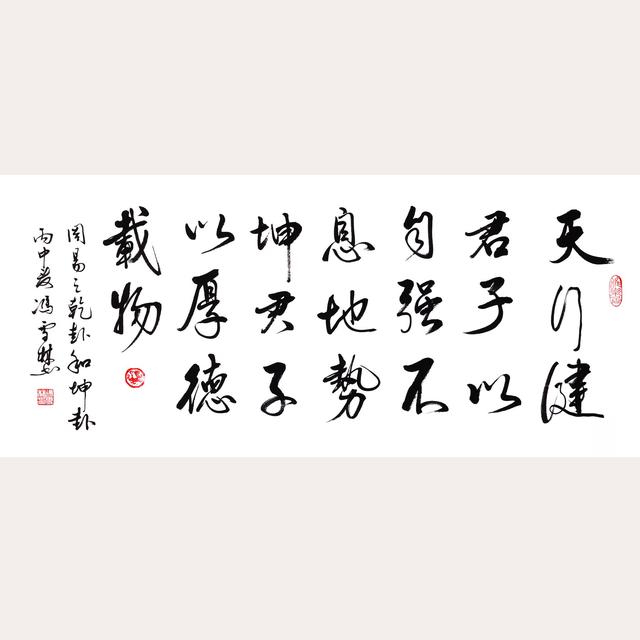 天行健
君子以
自强不
息地势
坤君子
以厚德
载物
周易之乾卦和坤卦
丙申发冯雪